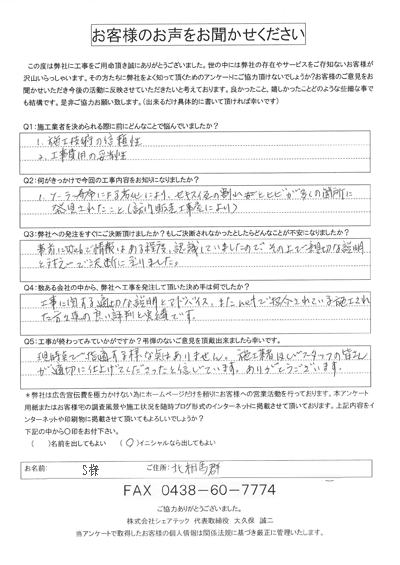 お客様のお声をお聞かせください
この度は弊社に工事をご用命頂き誠にありがとうございました。世の中には弊社の存在やサービスをご存知ないお客様が
沢山いらっしゃいます。その方たちに弊社をよく知って頂くためのアンケートにご協力頂けないでしょうか?お客様のご意見をお
聞かせいただき今後の活動に反映させていただきたいと考えております。良かったこと、嬉しかったことどのような些細な事で
も結構です。是非ご協力お願い致します。(出来るだけ具体的に書いて頂ければ幸いです)
Q1:施工業者を決められる際に前にどんなことで悩んでいましたか?
1. 施工技術の信頼性
2. 工事費用の妥当性
Q2:何がきっかけで今回の工事内容をお知りになりましたか?
1. ソーラー
ヒビが多くの箇所に
発見されたこと
Q3:弊社への発注をすぐにご決断頂けましたか?もしご決断されなかったとしたらどんなことが不安になりましたか?
事前にWebで情報はある程度、認識していましたのでその上で親切な説明
と
決断に至りました。
Q4:数ある会社の中から、弊社へ工事を発注して頂いた決め手は何でしたか?
工事に関する適切な説明とアドバイス、またネットで紹介されている施工され
た方々の良い評判と実績です。
Q5:工事が終わってみていかがですか?弔弾のないご意見を頂戴出来ましたら幸いです。
現時点で指摘する様な気はありません。施工業者ほじめスタッフの皆さん
が適切に仕上げてくださったと信じています。ありがとうございます。
*弊社は広告宣伝費を極力かけない為にホームページだけを頼りにお客様への営業活動を行っております。本アンケート
用紙またはお客様宅の調査風景や施工状況を随時ブログ形式のインターネットに掲載させて頂いております。上記内容をイ
ンターネットや印刷物に掲載させて頂いてもよろしいでしょうか?
下記の中から〇印をお付下さい。
( )名前を出してもよい (〇)イニシャルなら出してもよい
お名前: S様 ご住所: 北相馬郡
FAX 0438-60-7774
ご協力ありがとうございました。
株式会社シェアテック 代表取締役 大久保 誠二
当アンケートで取得したお客様の個人情報は関係法規に基づき厳正に管理いたします。